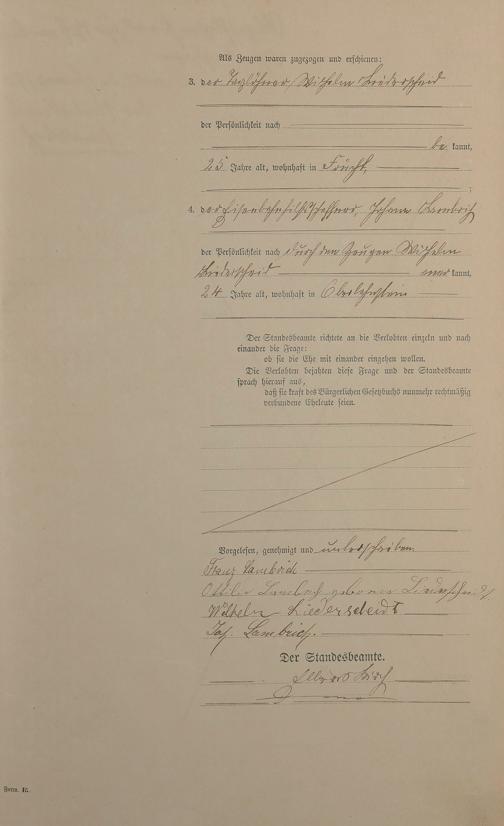 Als Zeugen waren zugezogen und erschienen:
3. der Taglöhner Wilhelm Liederscheid
der Persönlichkeit nach
be kannt,
25 Jahre alt, wohnhaft in Frücht,
;
4. der Eisenbahnhilfsschaffner, Johann Lambrich
der Persönlichkeit nach durch den Zeugen Wilhelm
Liederscheid kannt,
24 Jahre alt, wohnhaft in Oberlahnstein
Der Standesbeamte richtete an die Verlobten einzeln und nach
einander die Frage:
ob sie die Ehe mit einander eingehen wollen.
Die Verlobten bejahten diese Frage und der Standesbeamte
sprach hierauf aus,
daß sie kraft des Bürgerlichen Gesetzbuchs nunmehr rechtmäßig
verbundene Eheleute seien.
Vorgelesen, genehmigt und unterschrieben
Franz Lambrich
Lambrich geborene
Wilhelm Liederscheidt
Joh. Lambrich.
Der Standesbeamte.